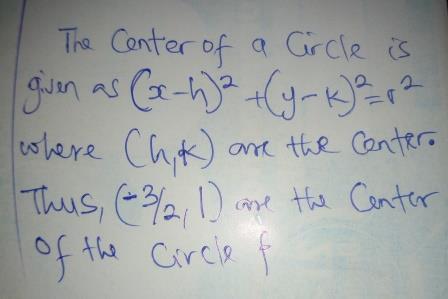 The Center of a Circle is
given as (x-h)² + (y-k)² = r²
where (h,k) are the Center.
Thus, (-3/2, 1) are the Center
Of the Circle f